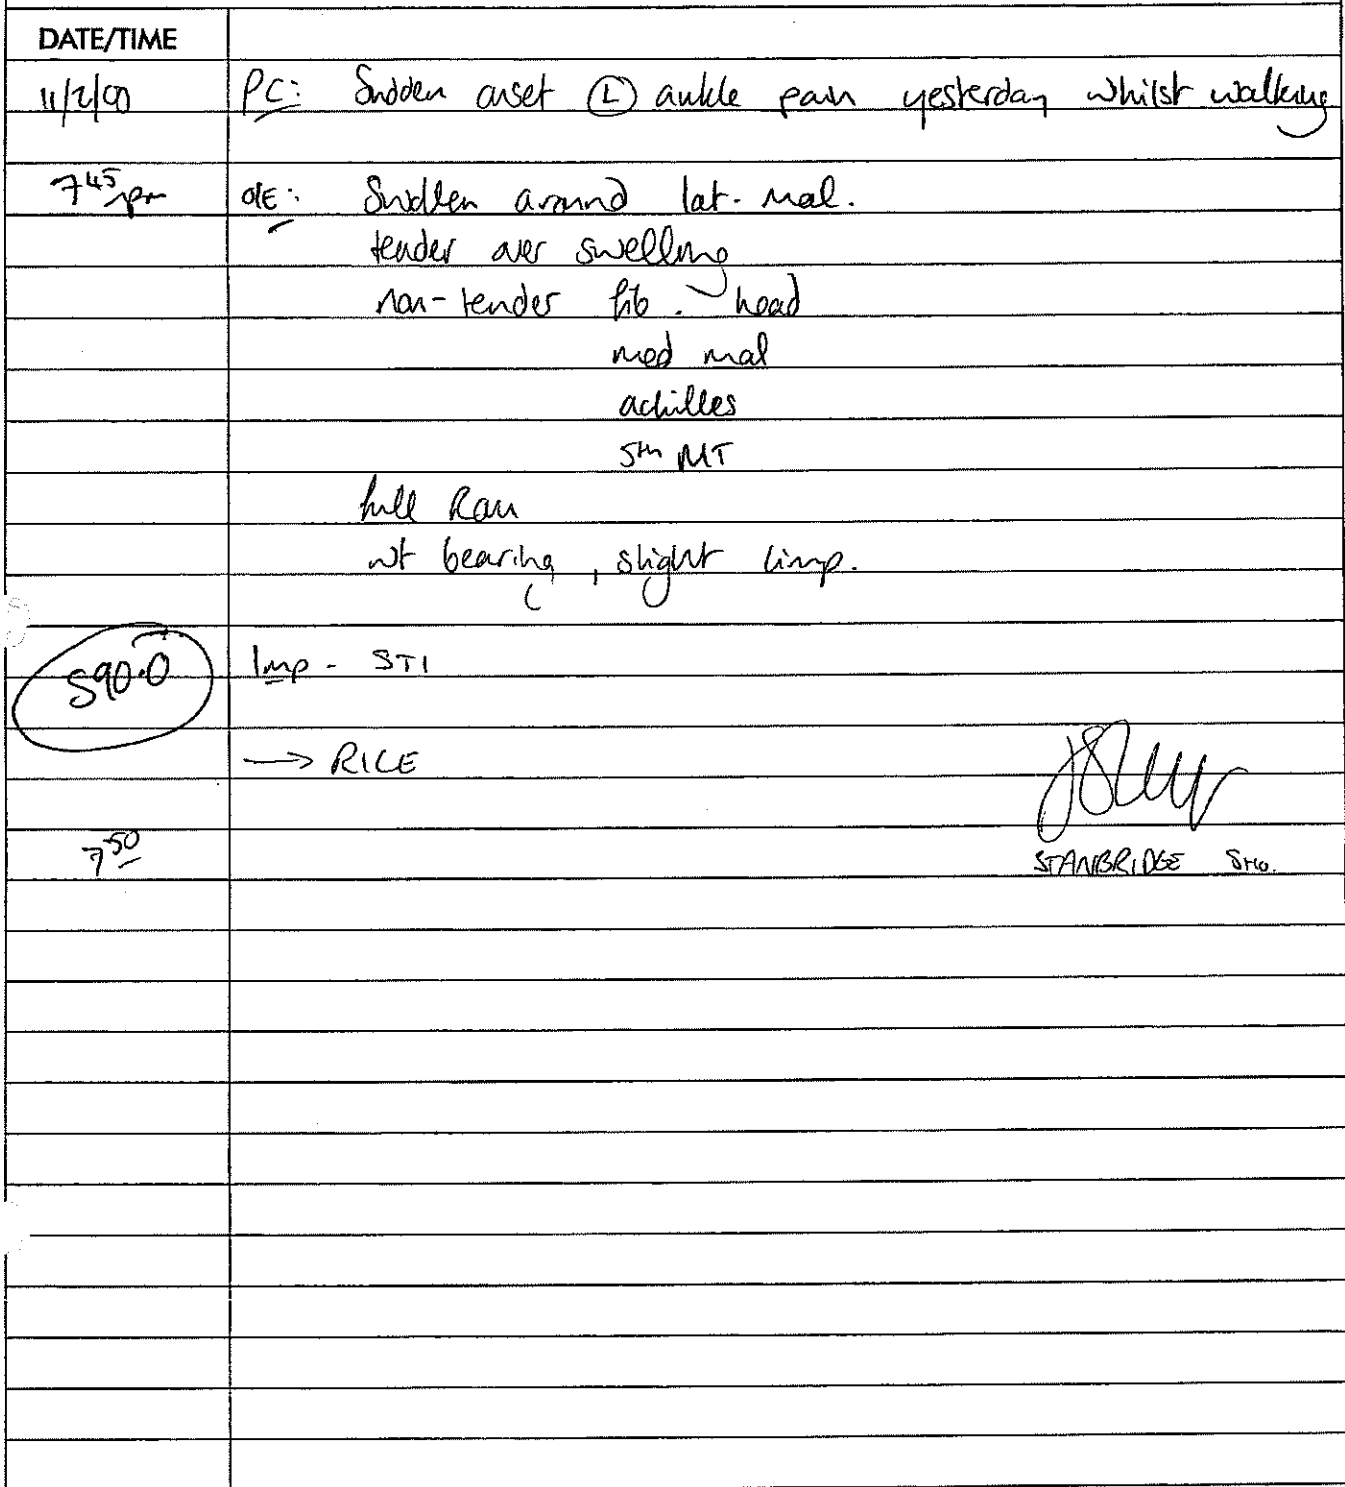 DATE/TIME
11/2/00 PC: Sudden onset (L) ankle pain yesterday whilst walking
7 45 pm O/E: Swollen around lat. mal.
tender over swelling
non-tender fib. head
med mal
achilles
5th MT
full ROM
wt bearing, slight limp.
S90.0 Imp - STI
→ RICE
7 50 STANBRIDGE SHO.